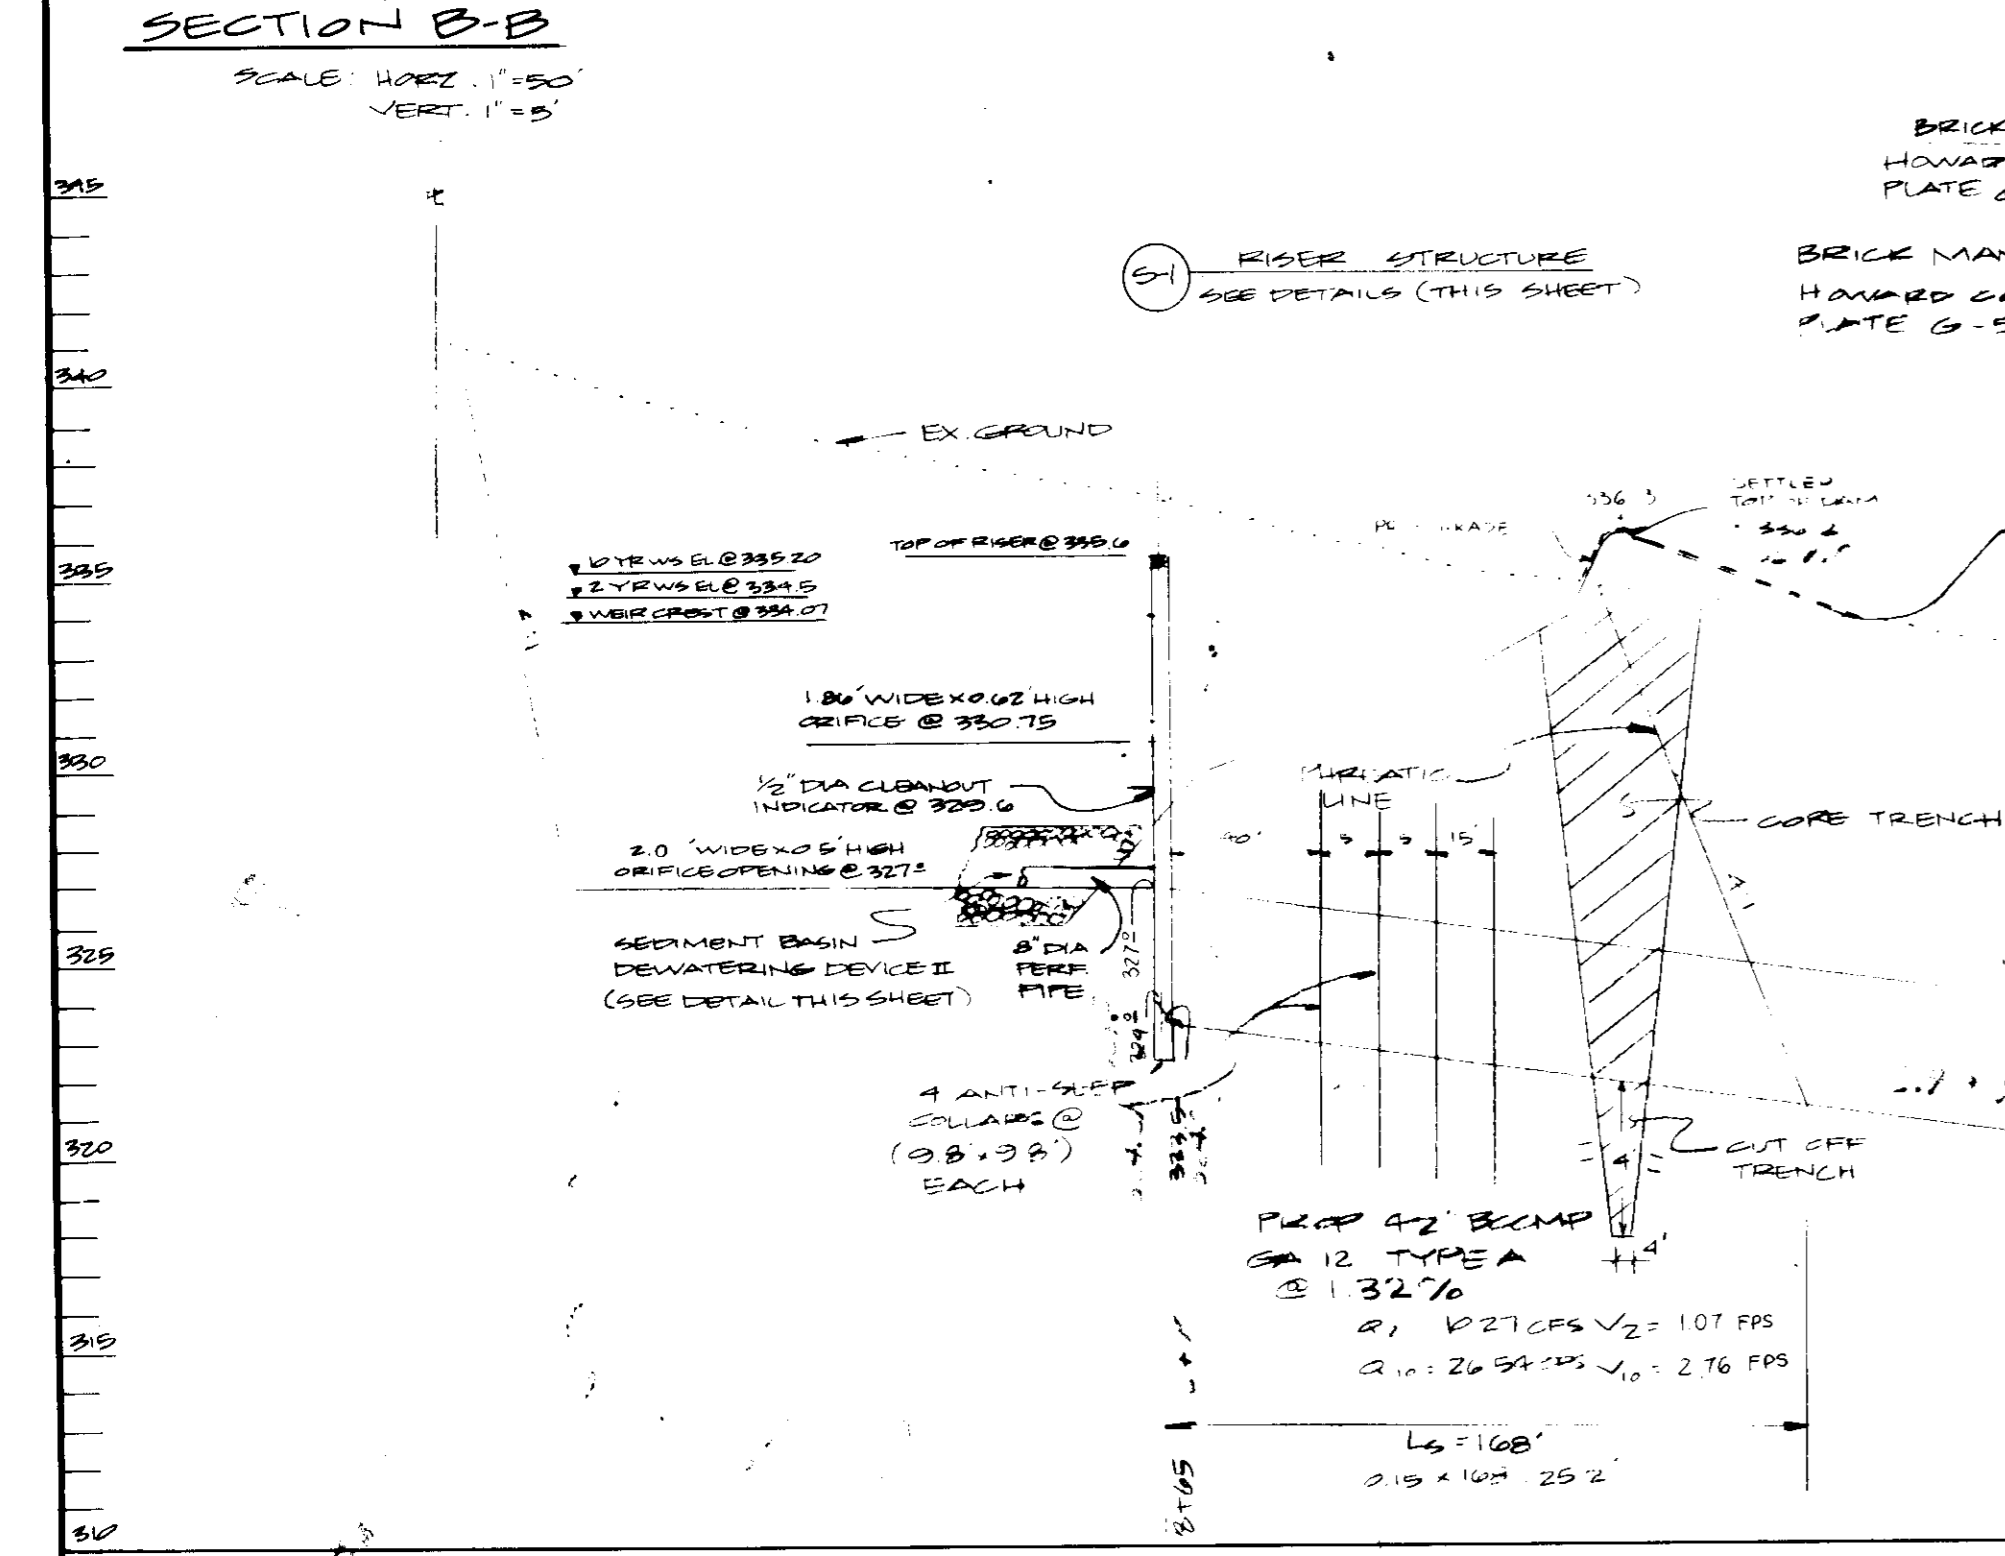 SECTION B-B
SCALE: HORZ. 1"=50'
VERT. 1"=5'
BRICK
HOWARD
PLATE
S-1
RISER STRUCTURE
SEE DETAILS (THIS SHEET)
BRICK MAN
HOWARD CO
PLATE G-5
345
340
335
330
325
320
315
310
EX. GROUND
336.3
SETTLED
TOP OF DAM
TOP OF RISER @ 335.6
10 YR WS EL @ 335.20
2 YR WS EL @ 334.5
WEIR CREST @ 334.07
1.86' WIDE X 0.62' HIGH
ORIFICE @ 330.75
1/2" DIA CLEANOUT
INDICATOR @ 329.6
2.0' WIDE X 0.5' HIGH
ORIFICE OPENING @ 327º
SEDIMENT BASIN
DEWATERING DEVICE II
(SEE DETAIL THIS SHEET)
8" DIA
PERF.
PIPE
327º
324º
PHREATIC
LINE
40'
5
5
15'
CORE TRENCH
4 ANTI-SEEP
COLLARS @
(9.8' x 9.8')
EACH
323.5
CUT OFF
TRENCH
4'
4'
PROP 42" BCCMP
GA 12 TYPE A
@ 1.32%
10.27 CFS V2 = 1.07 FPS
Q10 = 26.54 CFS V10 = 2.76 FPS
LS = 168'
0.15 x 168 25.2'
2+65